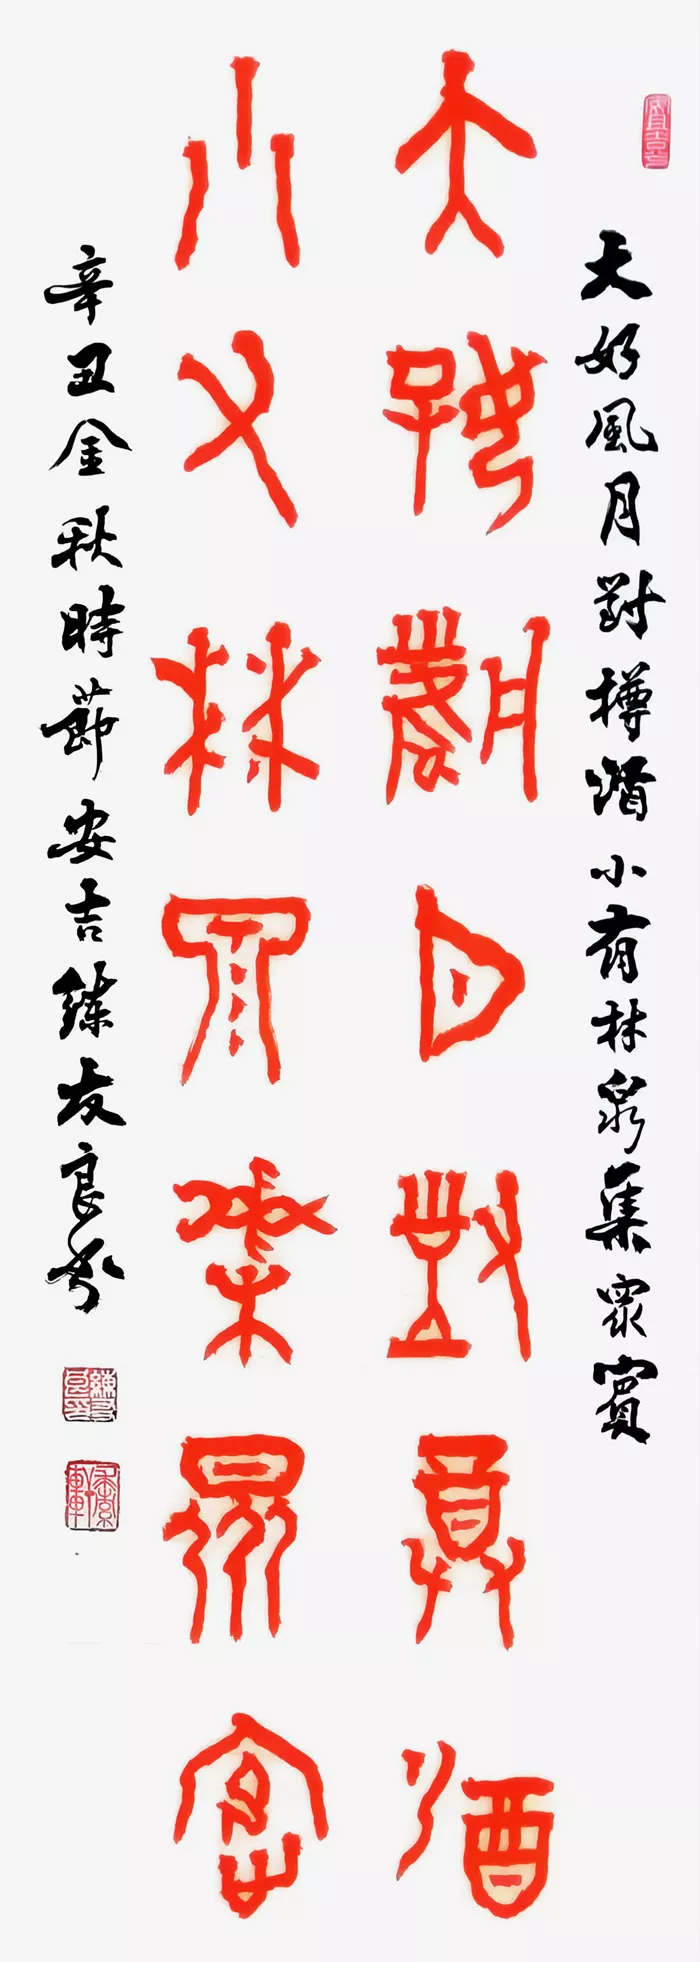 大好風月對樽酒小有林泉集眾賓
大好風月對尊酒
小有林泉集眾賓
辛丑金秋時節安吉練友良書